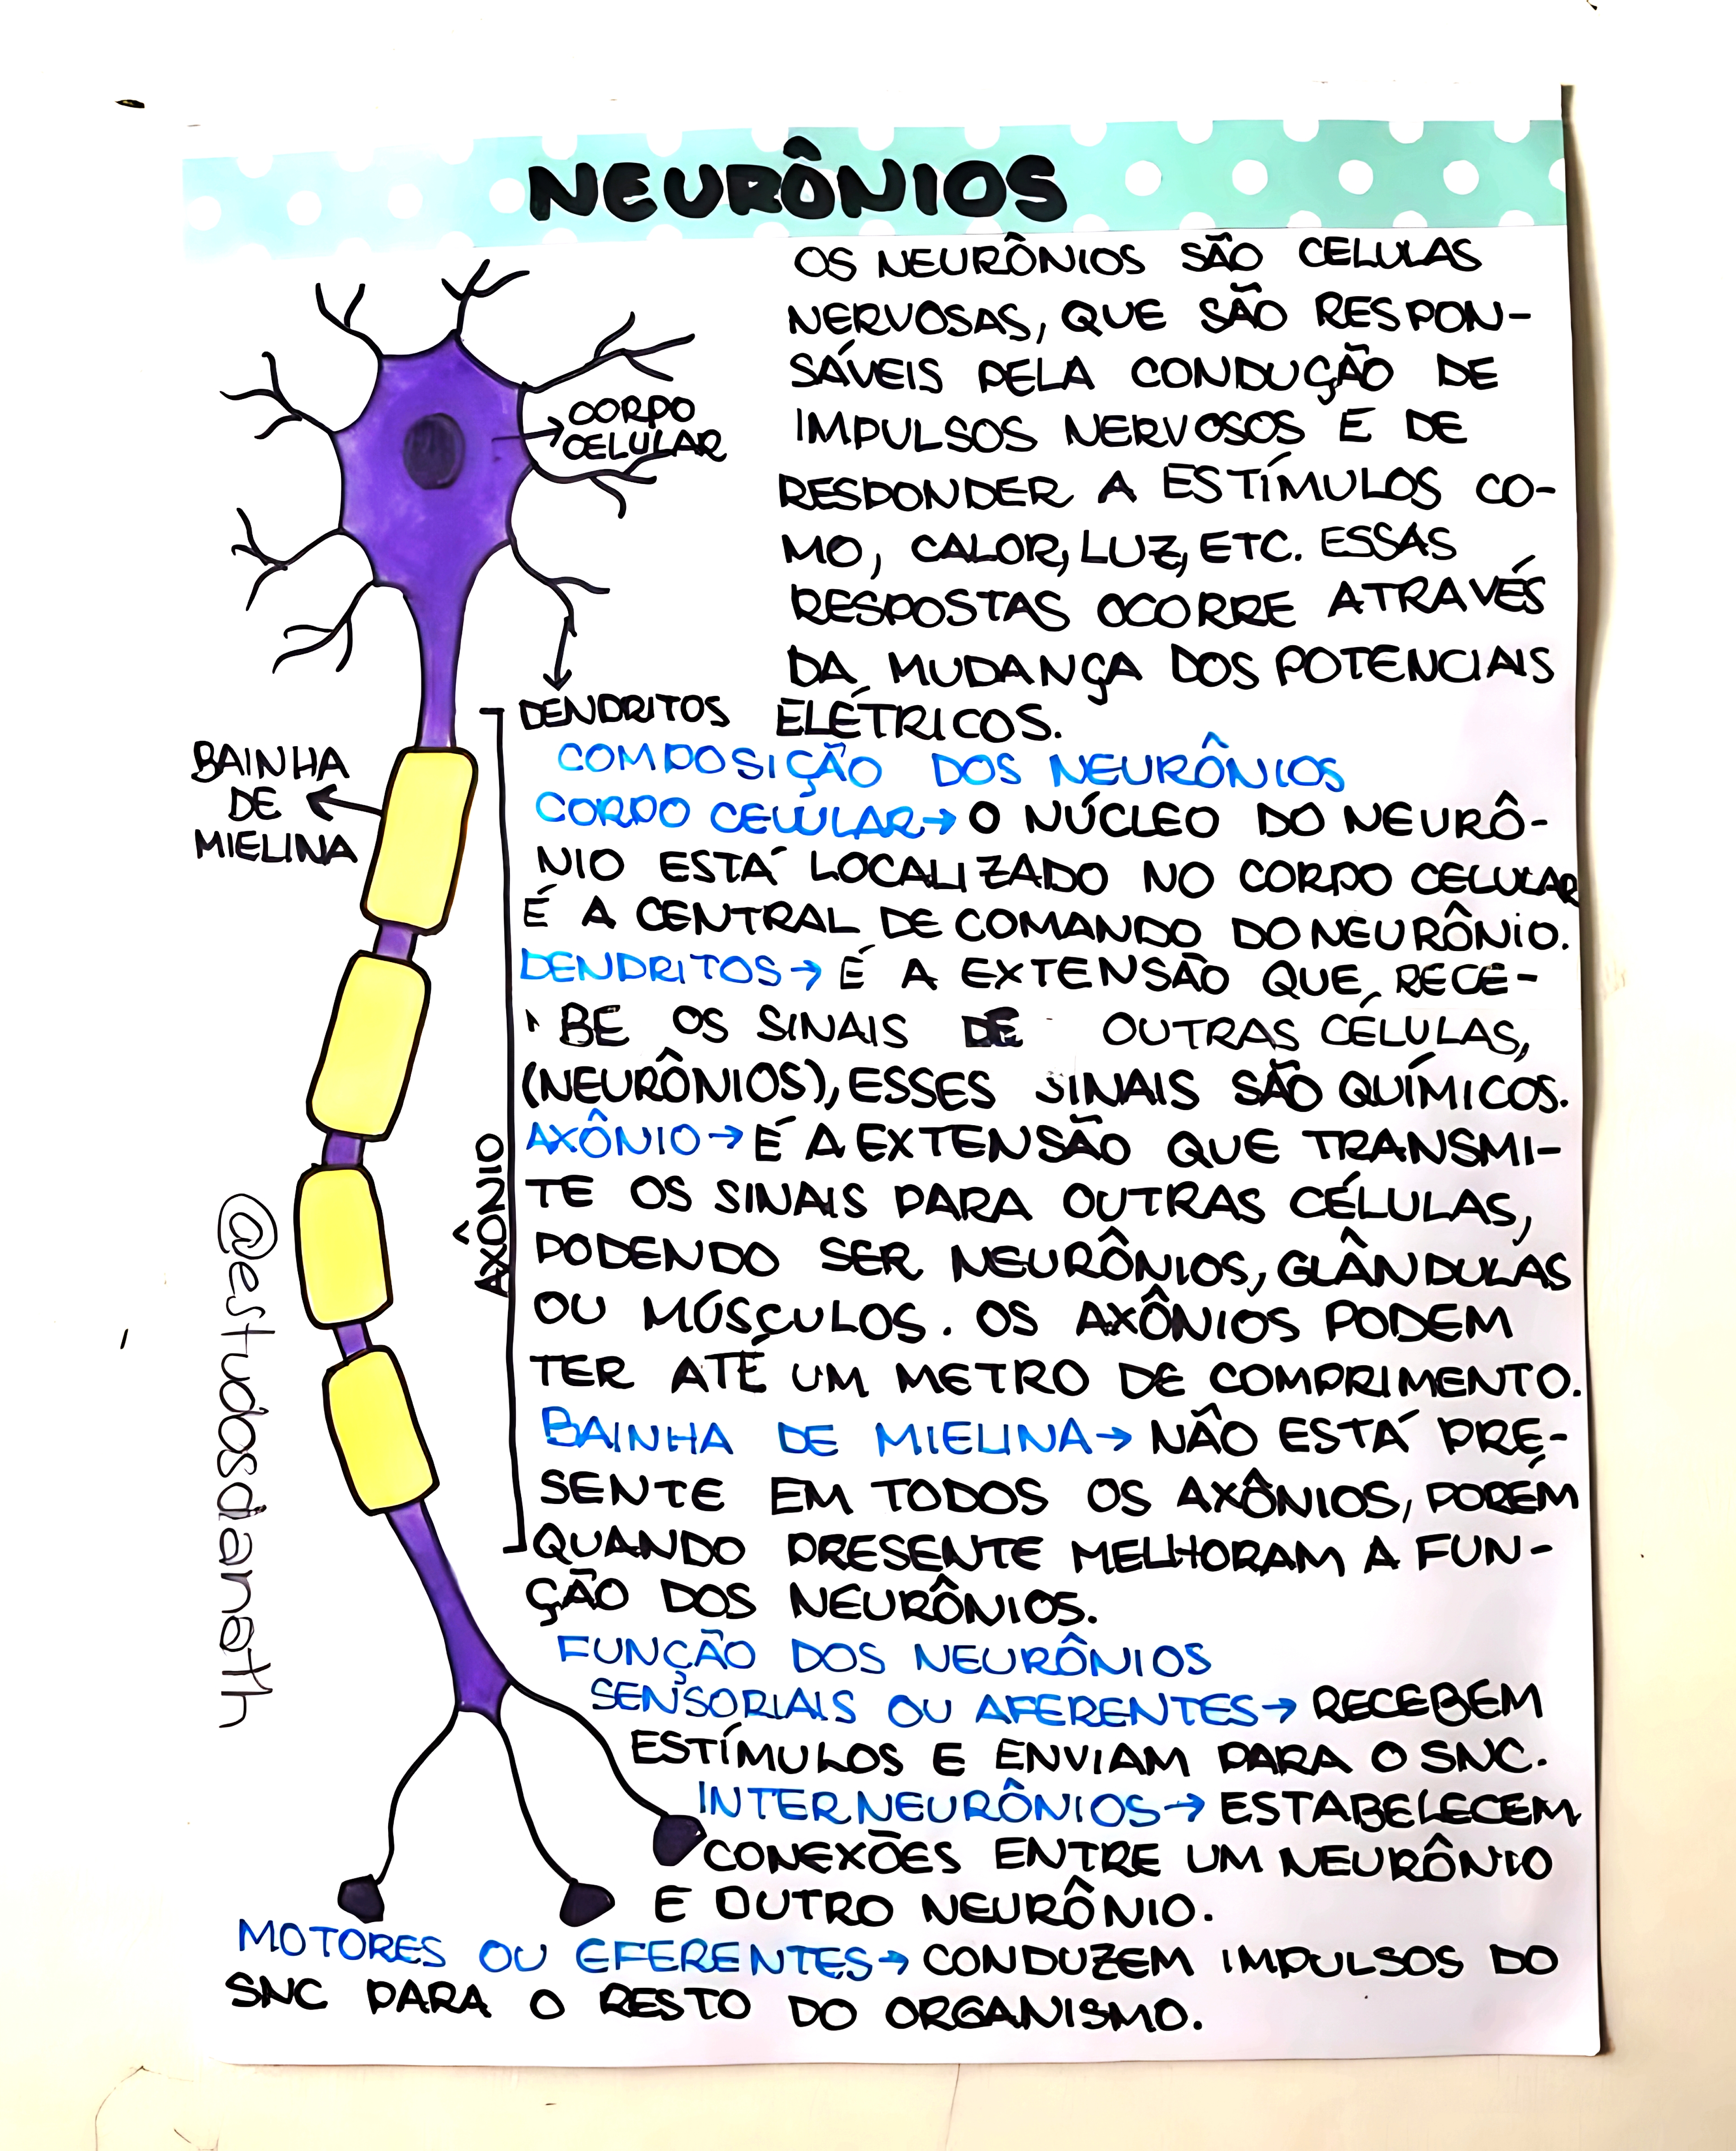 NEURÔNIOS
OS NEURÔNIOS SÃO CELULAS
NERVOSAS, QUE SÃO RESPON-
SÁVEIS PELA CONDUÇÃO DE
IMPULSOS NERVOSOS E DE
RESPONDER A ESTÍMULOS CO-
MO, CALOR, LUZ, ETC. ESSAS
RESPOSTAS OCORRE ATRAVÉS
DA MUDANÇA DOS POTENCIAIS
ELÉTRICOS.
CORPO
CELULAR
DENDRITOS
BAINHA
DE
MIELINA
AXÔNIO
COMPOSIÇÃO DOS NEURÔNIOS
CORPO CELULAR→ O NÚCLEO DO NEURÔ-
NIO ESTÁ LOCALIZADO NO CORPO CELULAR
É A CENTRAL DE COMANDO DO NEURÔNIO.
DENDRITOS→ É A EXTENSÃO QUE RECE-
BE OS SINAIS DE OUTRAS CÉLULAS,
(NEURÔNIOS), ESSES SINAIS SÃO QUÍMICOS.
AXÔNIO→ É A EXTENSÃO QUE TRANSMI-
TE OS SINAIS PARA OUTRAS CÉLULAS,
PODENDO SER NEURÔNIOS, GLÂNDULAS
OU MÚSCULOS. OS AXÔNIOS PODEM
TER ATÉ UM METRO DE COMPRIMENTO.
BAINHA DE MIELINA→ NÃO ESTÁ PRE-
SENTE EM TODOS OS AXÔNIOS, PORÉM
QUANDO PRESENTE MELHORAM A FUN-
ÇÃO DOS NEURÔNIOS.
FUNÇÃO DOS NEURÔNIOS
SENSORIAIS OU AFERENTES→ RECEBEM
ESTÍMULOS E ENVIAM PARA O SNC.
INTERNEURÔNIOS→ ESTABELECEM
CONEXÕES ENTRE UM NEURÔNIO
E OUTRO NEURÔNIO.
MOTORES OU EFERENTES→ CONDUZEM IMPULSOS DO
SNC PARA O RESTO DO ORGANISMO.
@estudosdianath